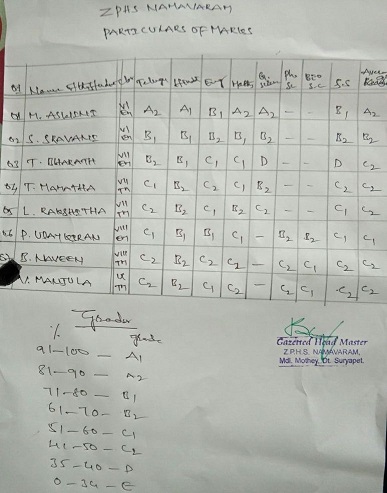 Z.P.H.S NAMAVARAM
PARTICULARS OF MARKS
Name of the student Class Telugu Hindi Eng Maths G. Science Phy Sc Bio S.C S.S
M. ASWINI VI EM A2 A1 B1 A2 A2 - - B1 A2
02 S. SRAVANI VI EM B1 B1 B2 B1 B2 - - B2 B2
03 T. BHARATH VII EM B2 B1 C1 C1 D - - D C2
04 T. MAMATHA VII TM C1 B2 C2 C1 B2 - - C2 C2
05 L. RAKSHITHA VII TM C2 B1 C1 B2 C2 - - C1 C2
06 P. UDAY KIRAN VIII EM C1 B1 B1 C1 - B2 B2 C1 C1
B. NAVEEN VIII TM C2 B2 C2 C2 - C2 C1 C2 C2
V. MANJULA IX TM C2 B2 C1 C2 - C2 C1 C2 C2
Grades
% grade
91-100 - A1
81-90 - A2
71-80 - B1
61-70 - B2
51-60 - C1
41-50 - C2
35-40 - D
0-34 - E
Gazetted Head Master
Z.P.H.S. NAMAVARAM,
Mdl. Mothey, Dt. Suryapet.